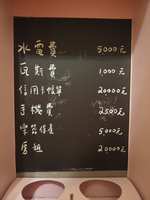 水電費 5000元
瓦斯費 1000元
信用卡帳單 20000元
手機費 2500元
學營保產 5000元
房租 20000元